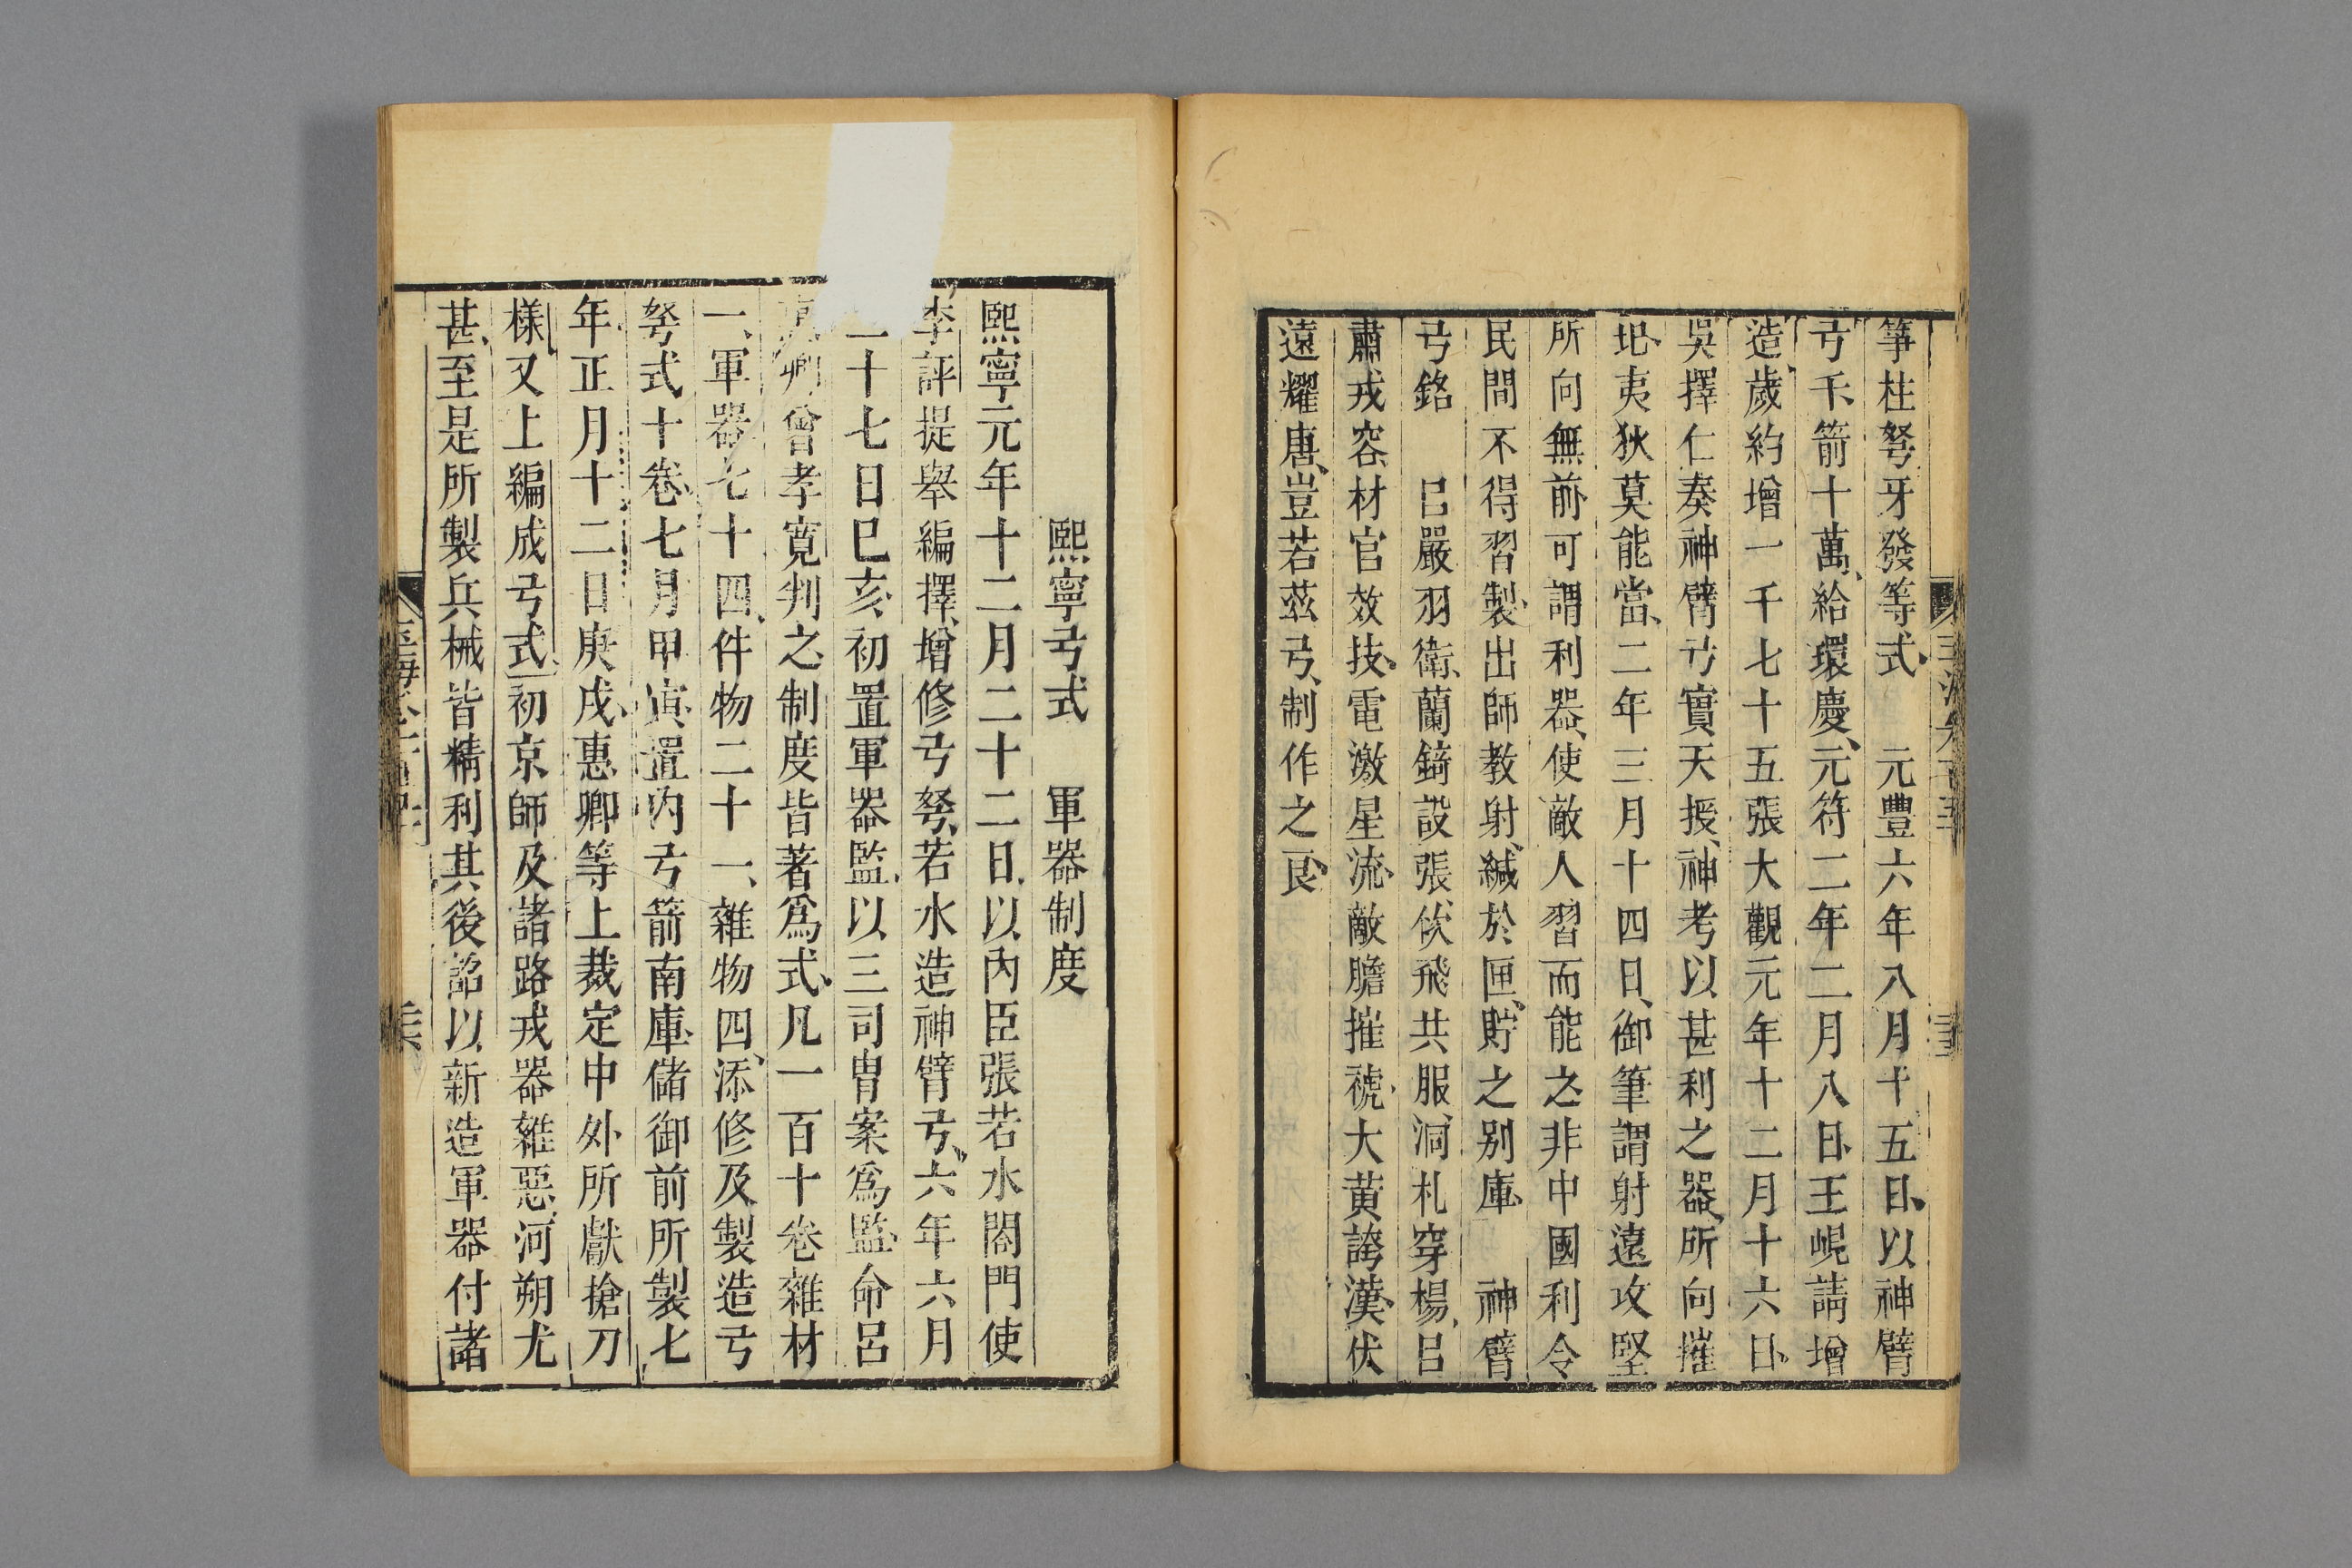 筝柱弩牙發等式 元豐六年八月十五日以神臂
弓千箭十萬給環慶元符二年二月八日王崐請增
造歲約增一千七十五張大觀元年十二月十六日
吳擇仁奏神臂弓實天授神考以甚利之器所向摧
圯夷狄莫能當二年三月十四日御筆謂射遠攻堅
所向無前可謂利器使敵人習而能之非中國利令
民間不得習製出師教射緘於匣貯之别庫 神臂
弓銘 吕嚴羽衛蘭錡設張佽飛共服洞札穿楊吕
肅戎容材官效技電激星流敵膽摧褫大黄誇漢伏
遠耀唐豈若茲弓制作之良
熙寧弓式 軍器制度
熙寧元年十二月二十二日以内臣張若水閤門使
李評提舉編擇增修弓弩若水造神臂弓六年六月
二十七日巳亥初置軍器監以三司胄案爲監命吕
惠卿曾孝寬判之制度皆著爲式凡一百十卷雜材
一軍器七十四件物二十一雜物四添修及製造弓
弩式十卷七月甲寅置内弓箭南庫儲御前所製七
年正月十二日庚戌惠卿等上裁定中外所獻搶刀
樣又上編成弓式初京師及諸路戎器雜惡河朔尤
甚至是所製兵械皆精利其後詔以新造軍器付諸